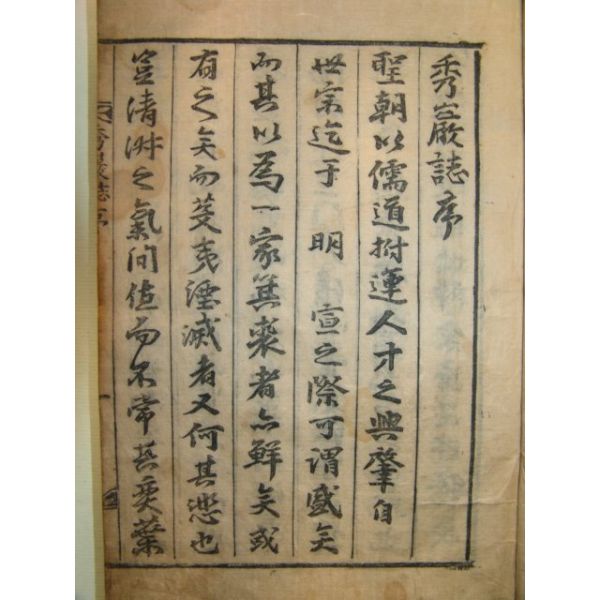 秀巖誌序
聖朝以儒道拊運人才之興肇自
世宗迄于 明 宣之際可謂盛矣
而其以爲一家箕裘者亦鮮矣或
有之矣而芟夷湮滅者又何其悲也
豈清淑之氣間値而不常其奕葉
秀巖誌序
一